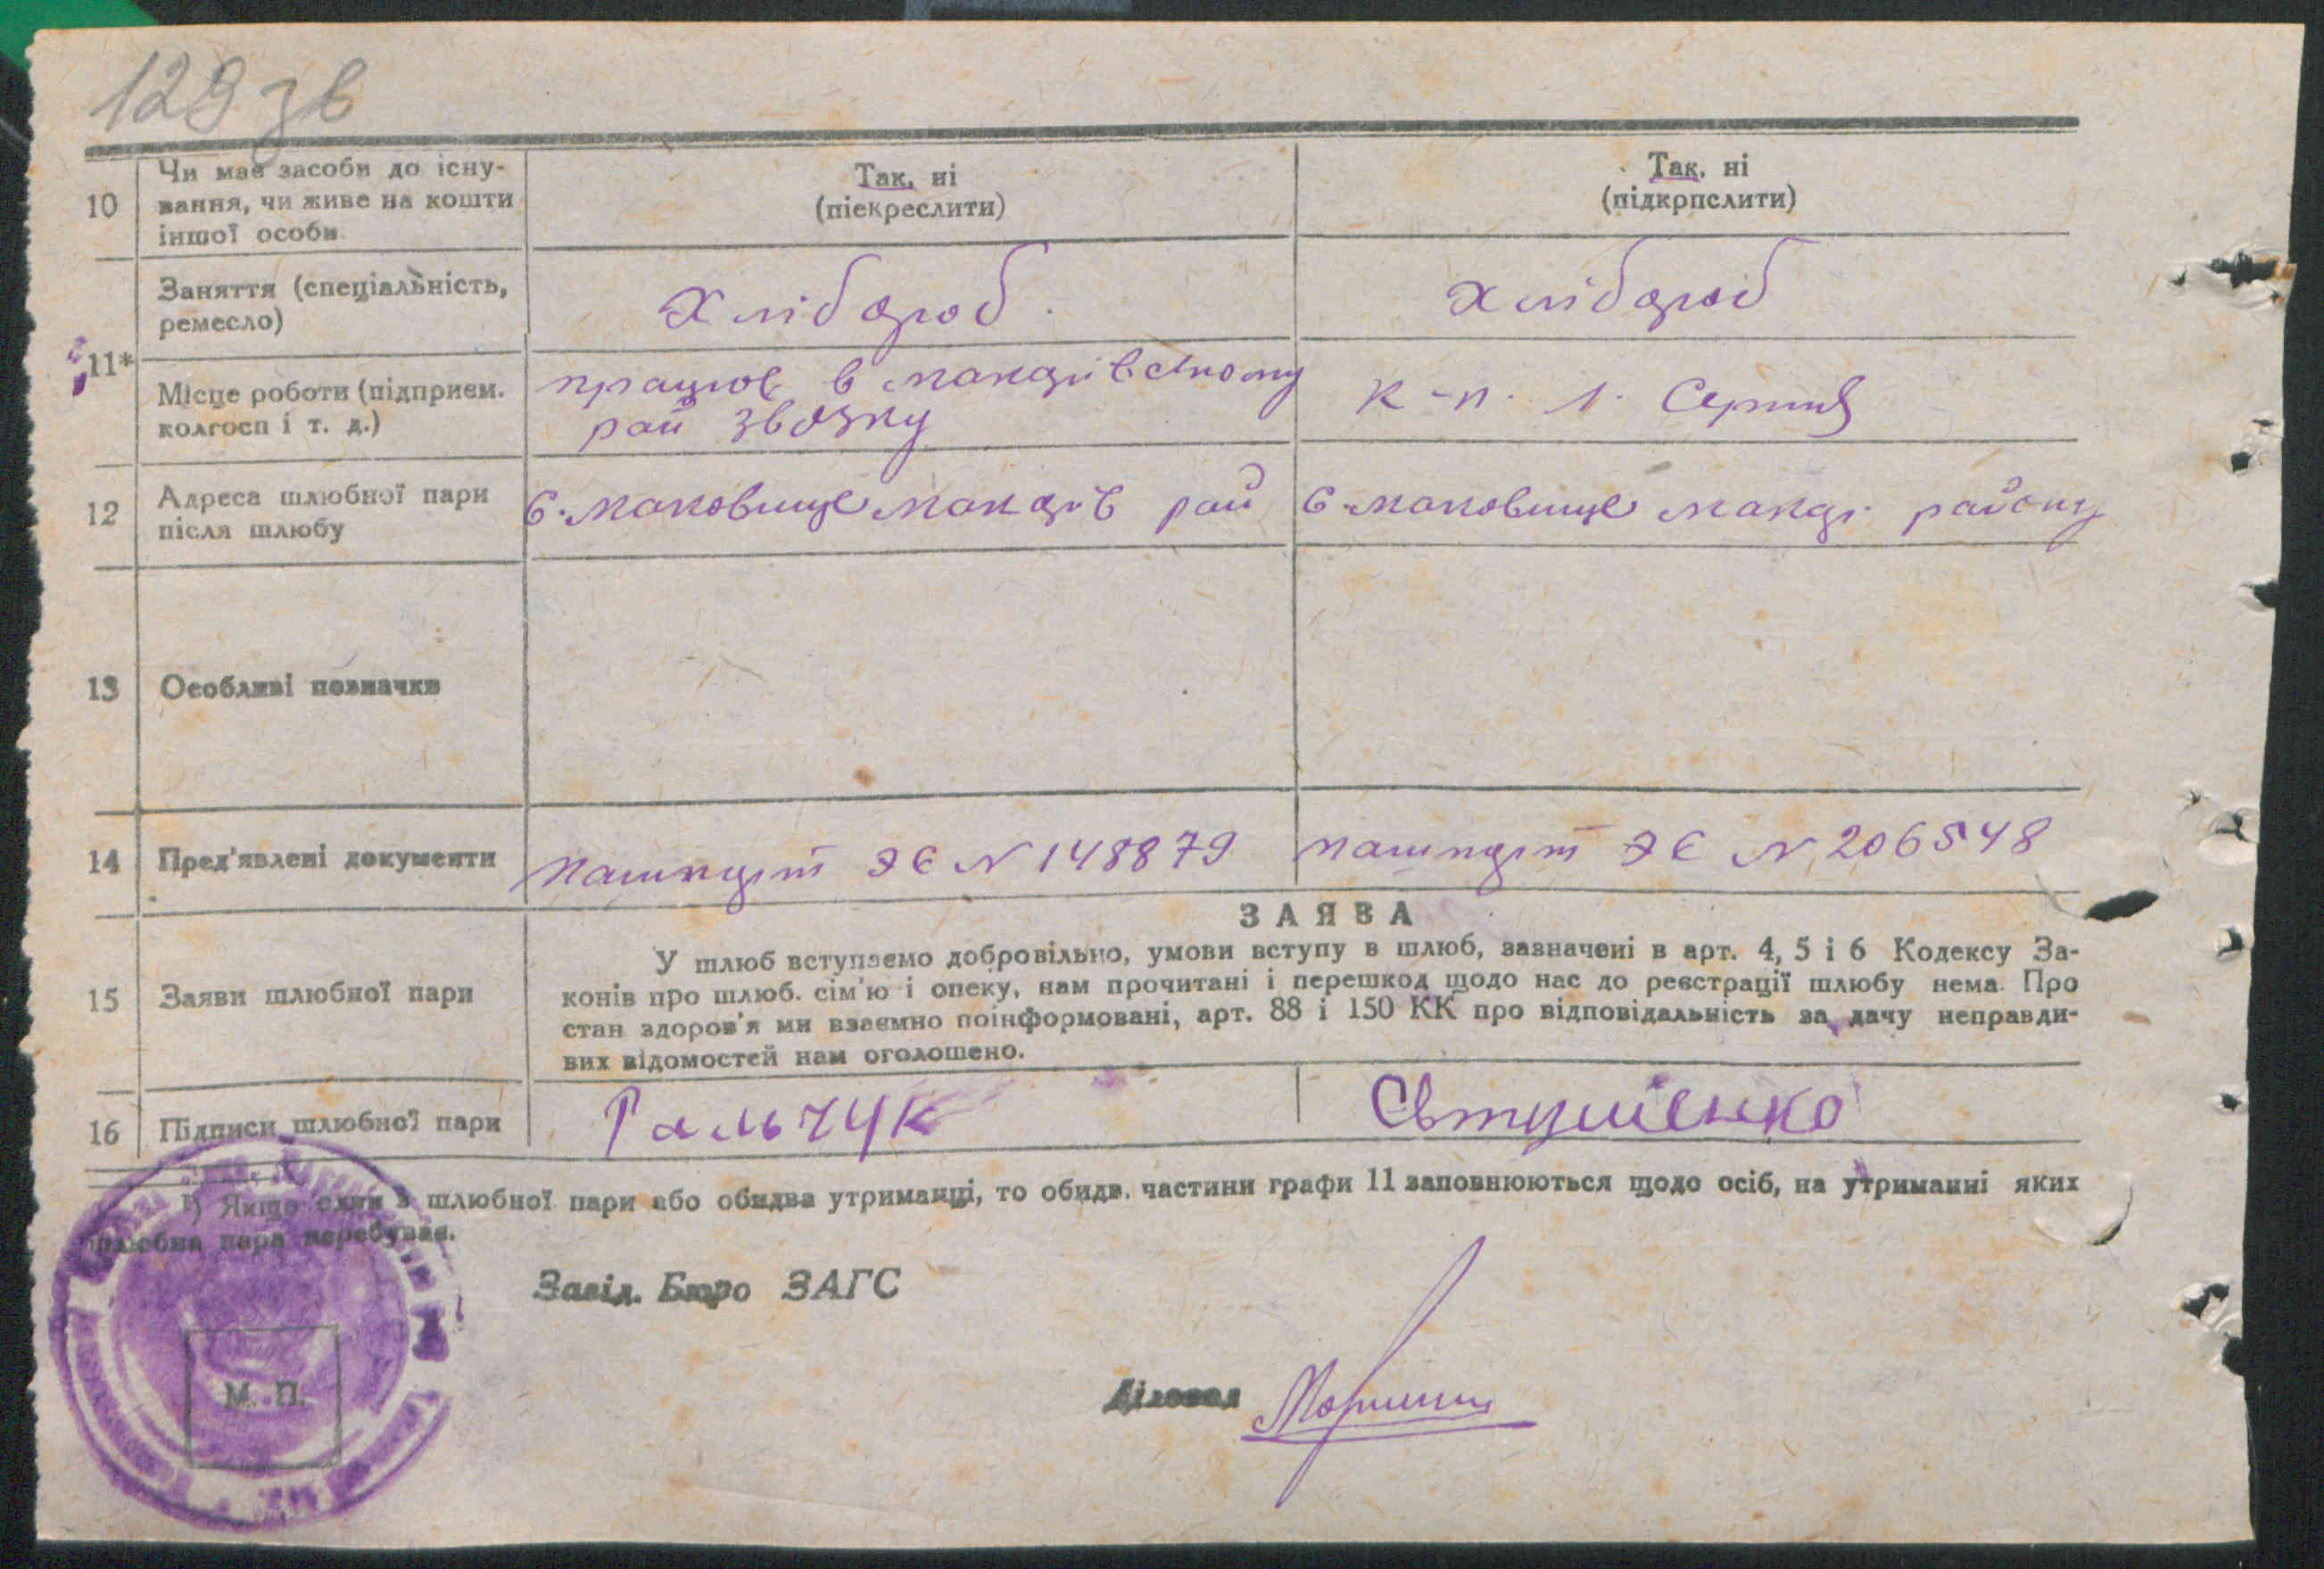 129 зв
10 Чи має засоби до існу-
вання, чи живе на кошти
іншої особи
Так, ні
(піекреслити)
Так, ні
(підкрпслити)
11*
Заняття (спеціальність,
ремесло)
Хлібороб.
Хлібороб
Місце роботи (підприєм.
колгосп і т. д.)
працює в макарівскному
рай звязку
к-п. 1. Серпня
12 Адреса шлюбної пари
після шлюбу
С. маковище макарів рай
С. маковище макар. району
13 Особливі позначки
14 Пред'явлені документи
пашпорт ЭЄ N 148879
пашпорт ЭЄ N 206548
15 Заяви шлюбної пари
ЗАЯВА
У шлюб вступаємо добровільно, умови вступу в шлюб, зазначені в арт. 4, 5 і 6 Кодексу За-
конів про шлюб. сім'ю і опеку, нам прочитані і перешкод щодо нас до реєстрації шлюбу нема. Про
стан здоров'я ми взаємно поінформовані, арт. 88 і 150 КК про відповідальність за дачу неправди-
вих відомостей нам оголошено.
16 Підписи шлюбної пари
Гальчук
Євтушенко
1) Якщо один з шлюбної пари або обидва утриманці, то обидв. частини графи 11 заповнюються щодо осіб, на утриманні яких
шлюбна пара перебуває.
Завід. Бюро ЗАГС
Діловод
М. П.